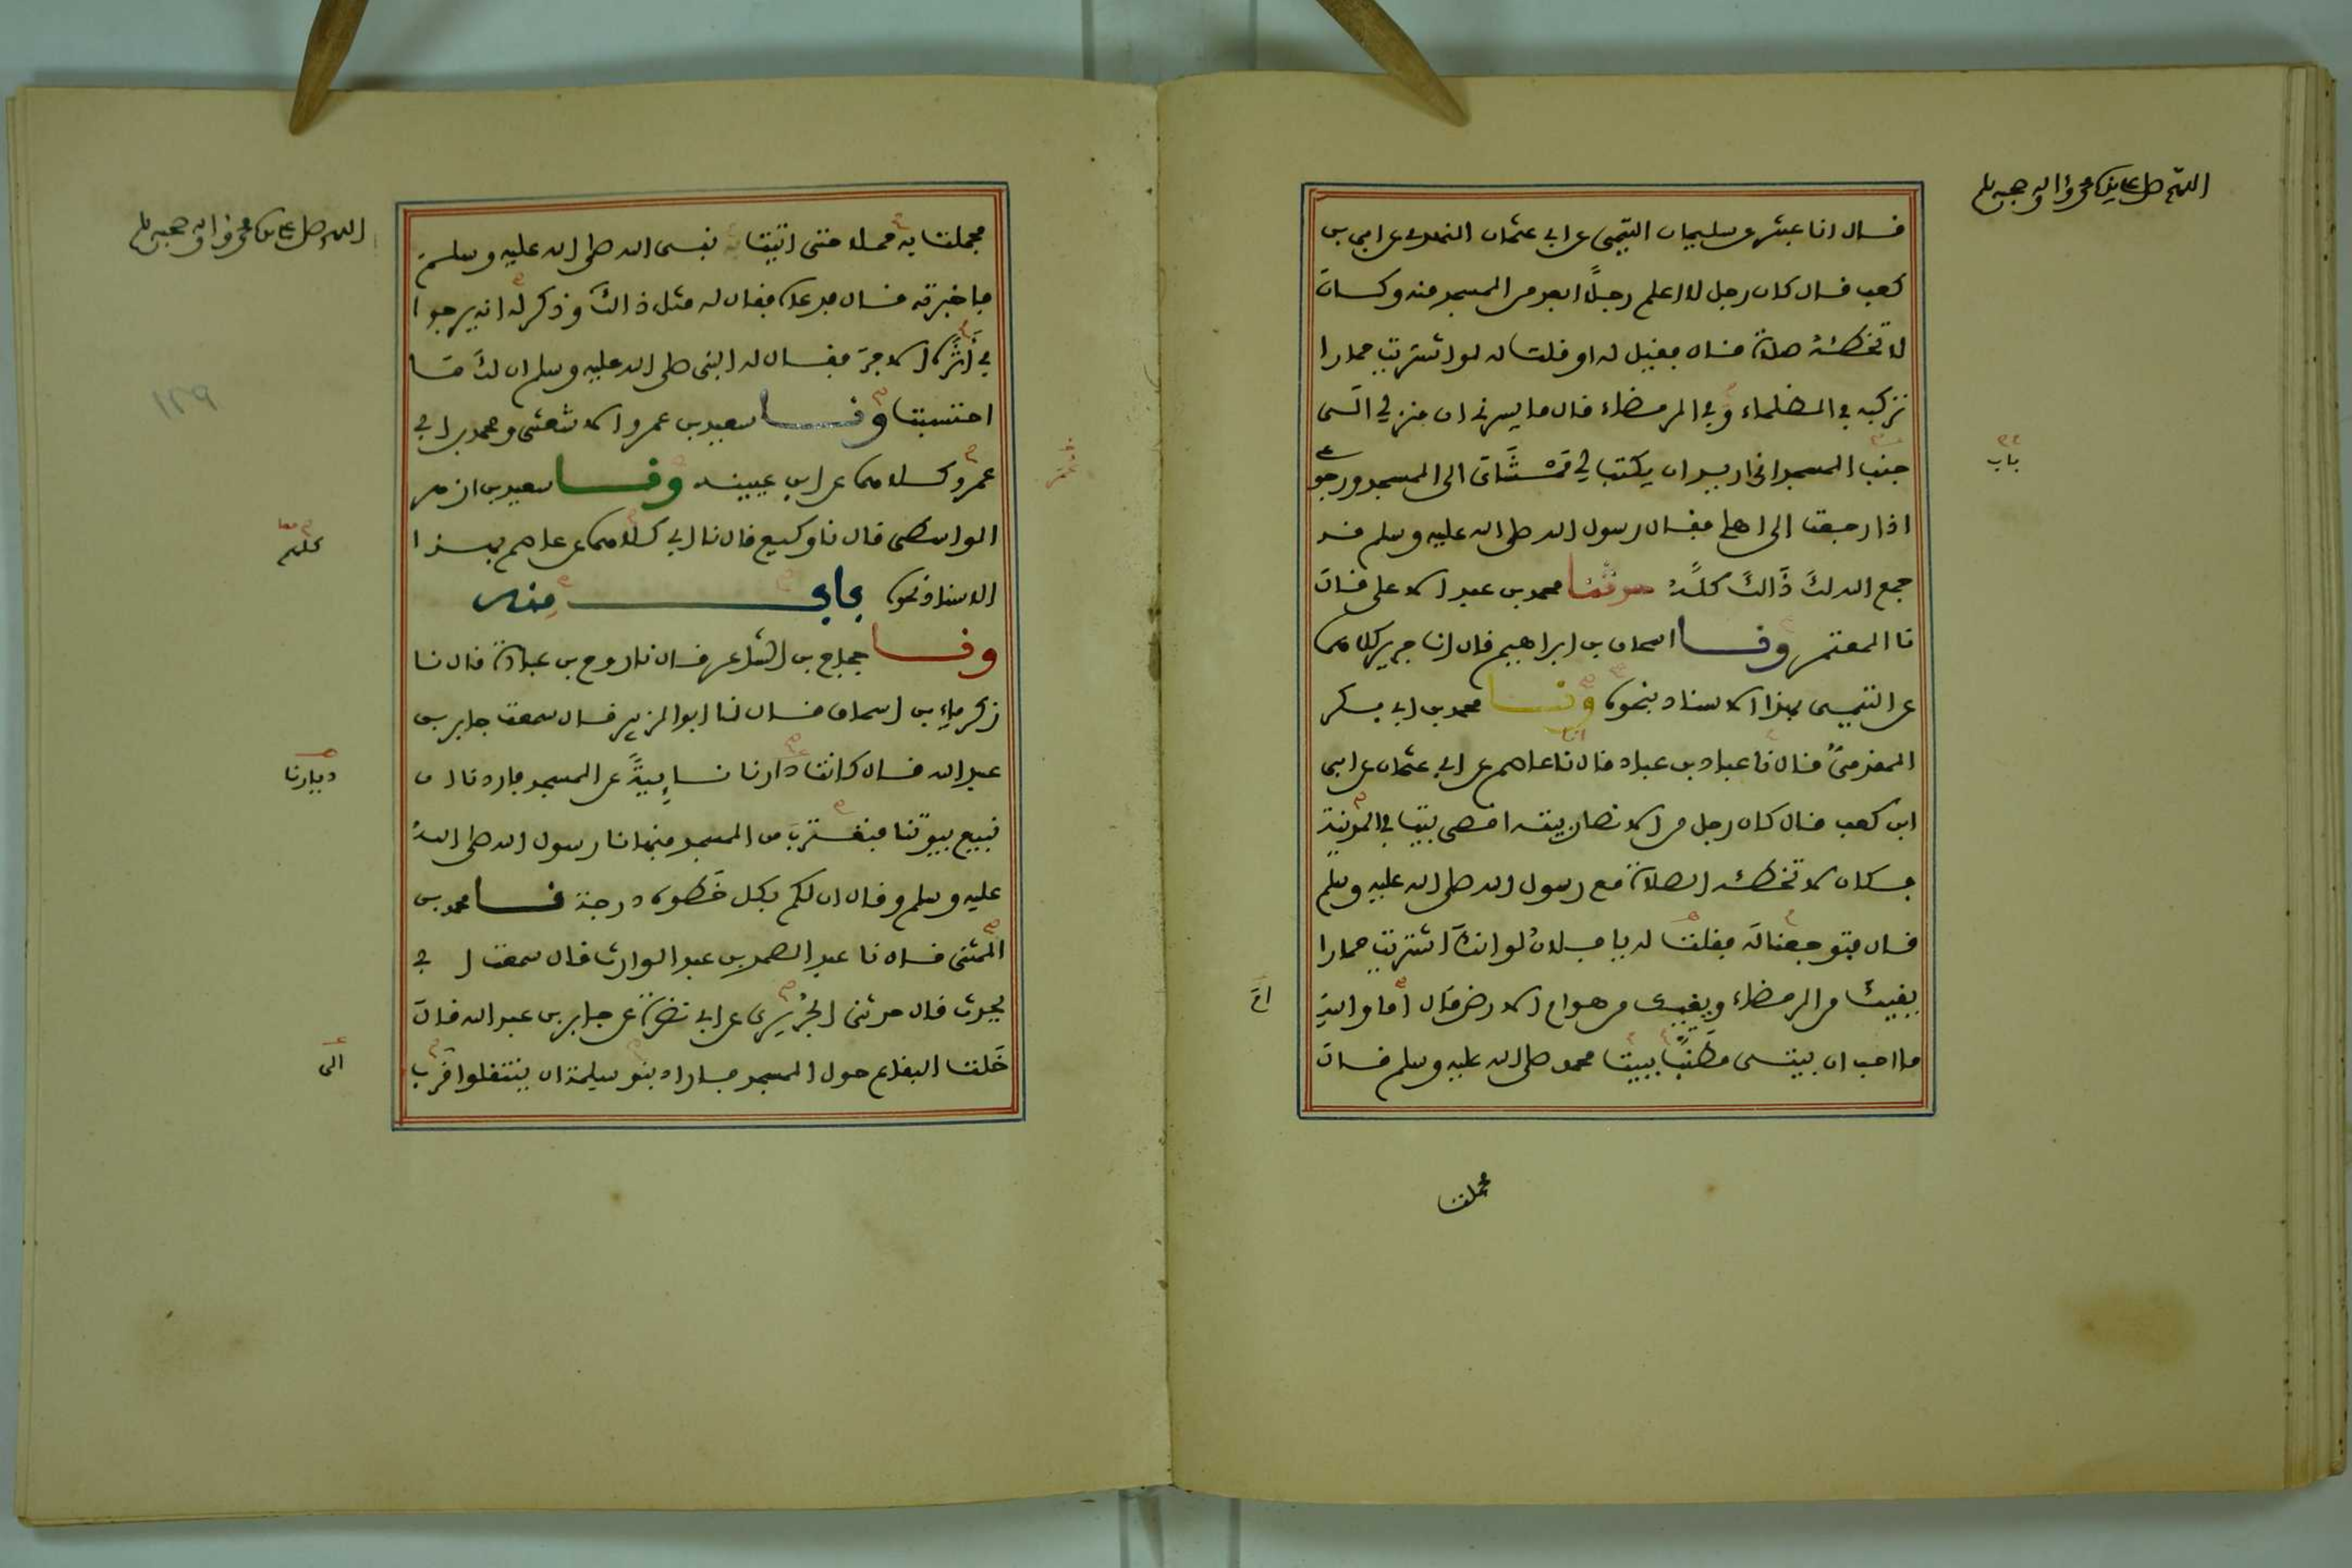 اللهم صل على سيدنا محمد وءاله وصحبه وسلم
قال انا عبثر عن سليمان التيمي عن ابي عثمان النهدي عن ابي بن
كعب قال كان رجل لا اعلم رجلًا ابعد من المسجد منه وكان
لا تخطئهُ صلاة قال فقيل له او قلت له لو اشتريت حمارا
تركبه في الظلماء وفي الرمضاء قال ما يسرني ان منزلي الى
جنب المسجد اني اريد ان يكتب لي مَمْشَايَ الى المسجد ورجوعي
باب
اذا رجعت الى اهلي فقال رسول الله صلى الله عليه وسلم قد
جمع الله لكَ ذَالكَ كلَّهُ حدثنا محمد بن عبد الاعلى قال
نا المعتمر ونا اسحاق بن ابراهيم قال انا جرير كلاهما
عن التيمي بهذا الاسناد بنحوه ونا محمد بن ابي بكر
المقدميُّ قال نا عباد بن عباد قال نا عاصم عن ابي عثمان عن ابي
ابن كعب قال كان رجل من الانصار بيته اقصى بيت في المدينة
فكان لا تخطئه الصلاة مع رسول الله صلى الله عليه وسلم
قال فتوجعنا له فقلت له يا فلانُ لو انكَ اشتريت حمارا
يقيك من الرمضاء ويقيك من هوام الارض قال أما والله
أمَ
ما احب ان بيتي مطنبًا ببيت محمد صلى الله عليه وسلم قال
فحملت
اللهم صل على سيدنا محمد وءاله وصحبه وسلم
فحملت به حملا حتى اتيت نبي الله صلى الله عليه وسلم
فاخبرته قال فدعاه فقال له مثل ذالكَ وذكر له انه يرجوا
في أَثَرِه الاجرَ فقال له النبي صلى الله عليه وسلم ان لكَ مَا
احتسبت ونا سعيد بن عمرو الاشعثي ومحمد بن ابي
عمرو كلاهما عن ابن عيينة ونا سعيد بن ازهر
الواسطي قال نا وكيع قال نا ابي كلاهما عن عاصم بهذا
كلهم
الاسناد نحوه باب منه
ونا حجاج بن الشاعر قال نا روح بن عبادة قال نا
زكرياء بن اسحاق قال نا ابو الزبير قال سمعت جابر بن
عبد الله قال كانت دارنا نائِيةً عن المسجد فاردنا ان
ديارنا
نبيع بيوتنا فنقتربَ من المسجد فنهانا رسول الله صلى اللهُ
عليه وسلم وقال ان لكم بكل خَطوة درجة نا محمد بن
المثنى قال نا عبد الصمد بن عبد الوارث قال سمعت ابي
يحدث قال حدثني الجُريري عن ابي نضرة عن جابر بن عبد الله قال
خَلت البقاع حول المسجد فاراد بنو سلمة ان ينتقلوا قُرب
الى